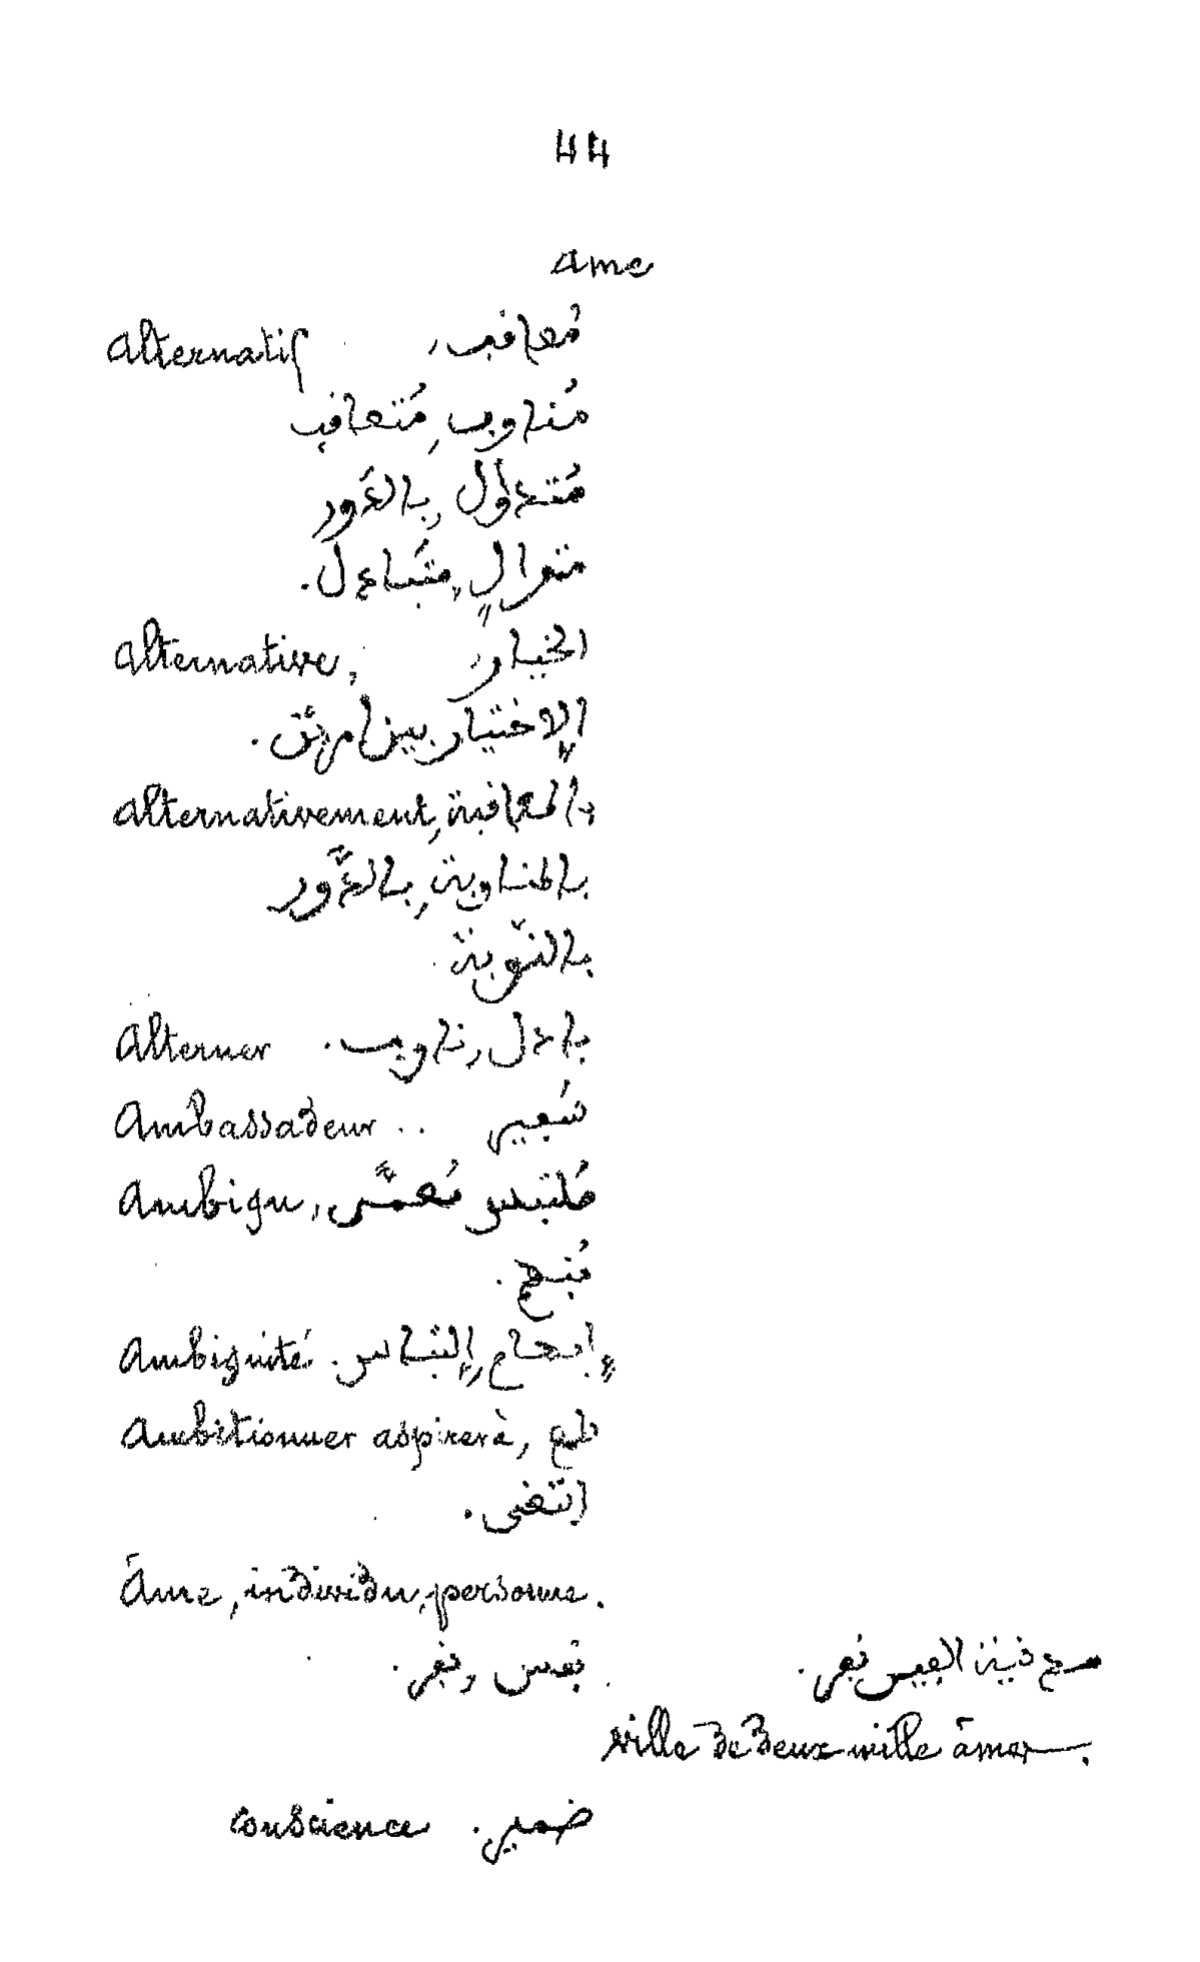 44
âme
alternatif مُعاقب,
مُناوب, مُتعاقب
مُتداول, بالدَّور
متوالٍ, متَبادل.
alternative, الخيار,
الإختيار بين امرين.
alternativement, بالمعاقبة
بالمناوبة, بالدَّور
بالنّوبة
Alterner بادل, ناوب.
Ambassadeur .. سَفير
Ambigu, مُلتبس مُعمًّى
مُبهم.
Ambiguité. إبهام, إلتباس.
Ambitionner aspirer à, طمع
ابتغى.
Âme, individu, personne.
نفس, نفر.
مدينة الفين نفر.
ville de deux mille âmes.
conscience ضمير.